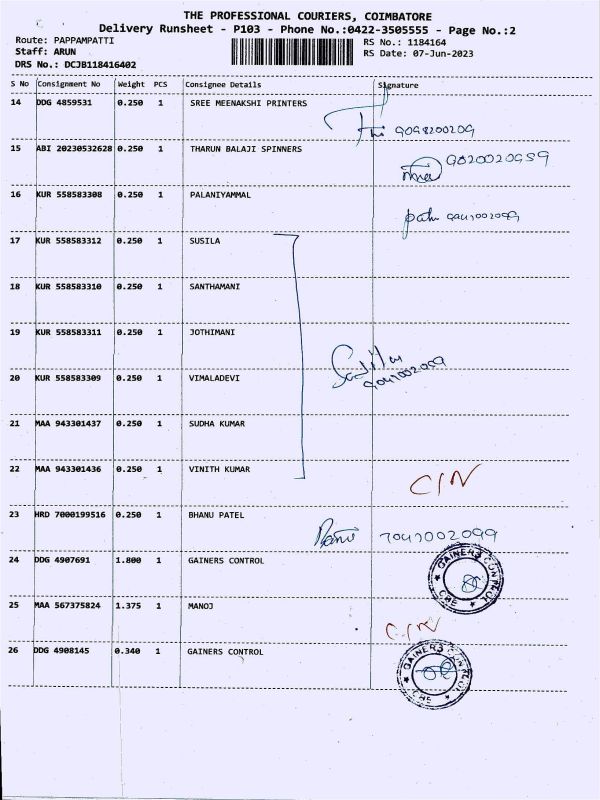 THE PROFESSIONAL COURIERS, COIMBATORE
Delivery Runsheet - P103 - Phone No.:0422-3505555 - Page No.:2
Route: PAPPAMPATTI
Staff: ARUN
DRS No.: DCJB118416402
RS No.: 1184164
RS Date: 07-Jun-2023
S No Consignment No Weight PCS Consignee Details Signature
14 DDG 4859531 0.250 1 SREE MEENAKSHI PRINTERS
15 ABI 20230532628 0.250 1 THARUN BALAJI SPINNERS
16 KUR 558583308 0.250 1 PALANIYAMMAL
17 KUR 558583312 0.250 1 SUSILA
18 KUR 558583310 0.250 1 SANTHAMANI
19 KUR 558583311 0.250 1 JOTHIMANI
20 KUR 558583309 0.250 1 VIMALADEVI
21 MAA 943301437 0.250 1 SUDHA KUMAR
22 MAA 943301436 0.250 1 VINITH KUMAR
C/N
23 HRD 7000199516 0.250 1 BHANU PATEL
24 DDG 4907691 1.800 1 GAINERS CONTROL
GAINERS CONTROL
CBE
25 MAA 567375824 1.375 1 MANOJ
C/N
26 DDG 4908145 0.340 1 GAINERS CONTROL
GAINERS CONTROL
CBE